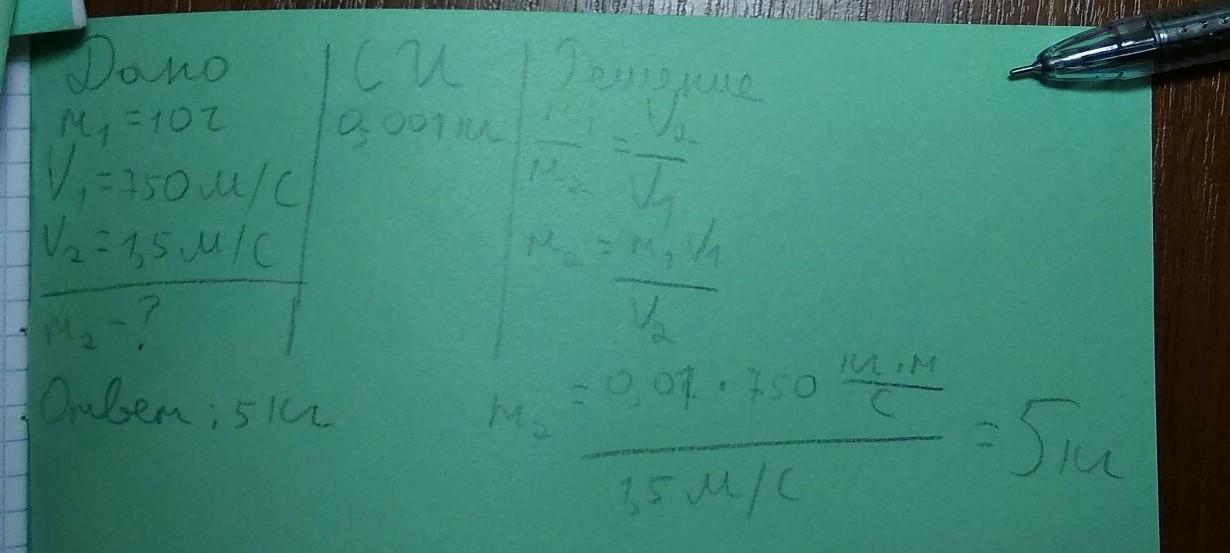 Дано
m₁ = 10 г
V₁ = 750 м/с
V₂ = 1,5 м/с
m₂ - ?
Ответ: 5 кг
СИ
0,001 кг
Решение
m₁/m₂ = V₂/V₁
m₂ = m₁V₁/V₂
m₂ = 0,01 · 750 кг·м/с / 1,5 м/с = 5 кг